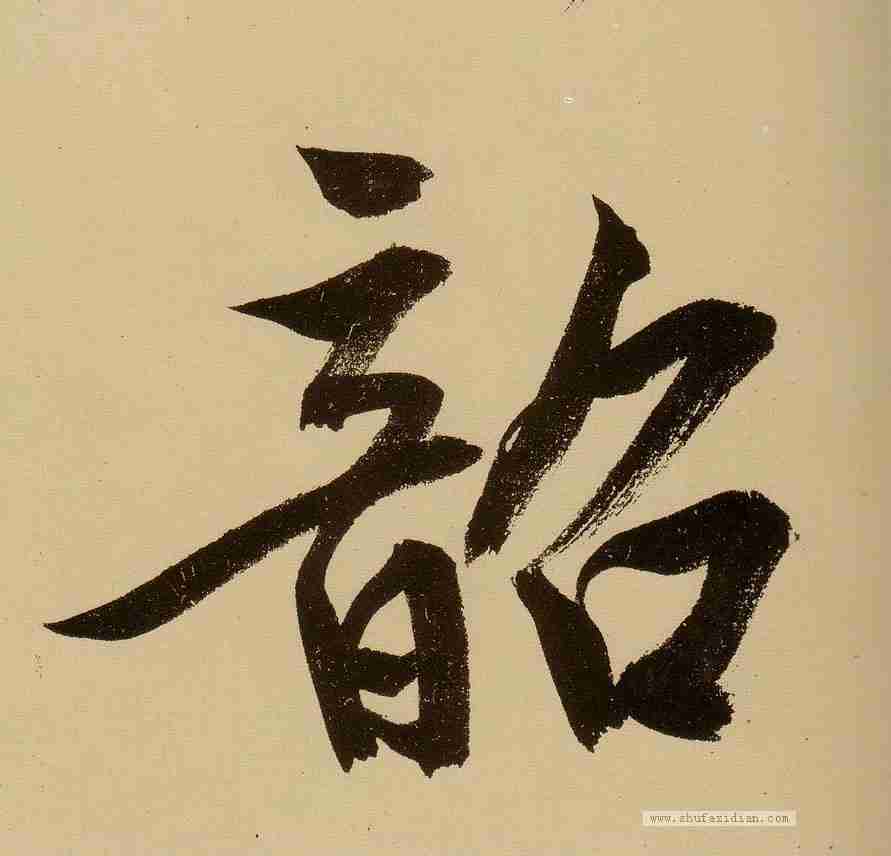 韶
www.shufazidian.com